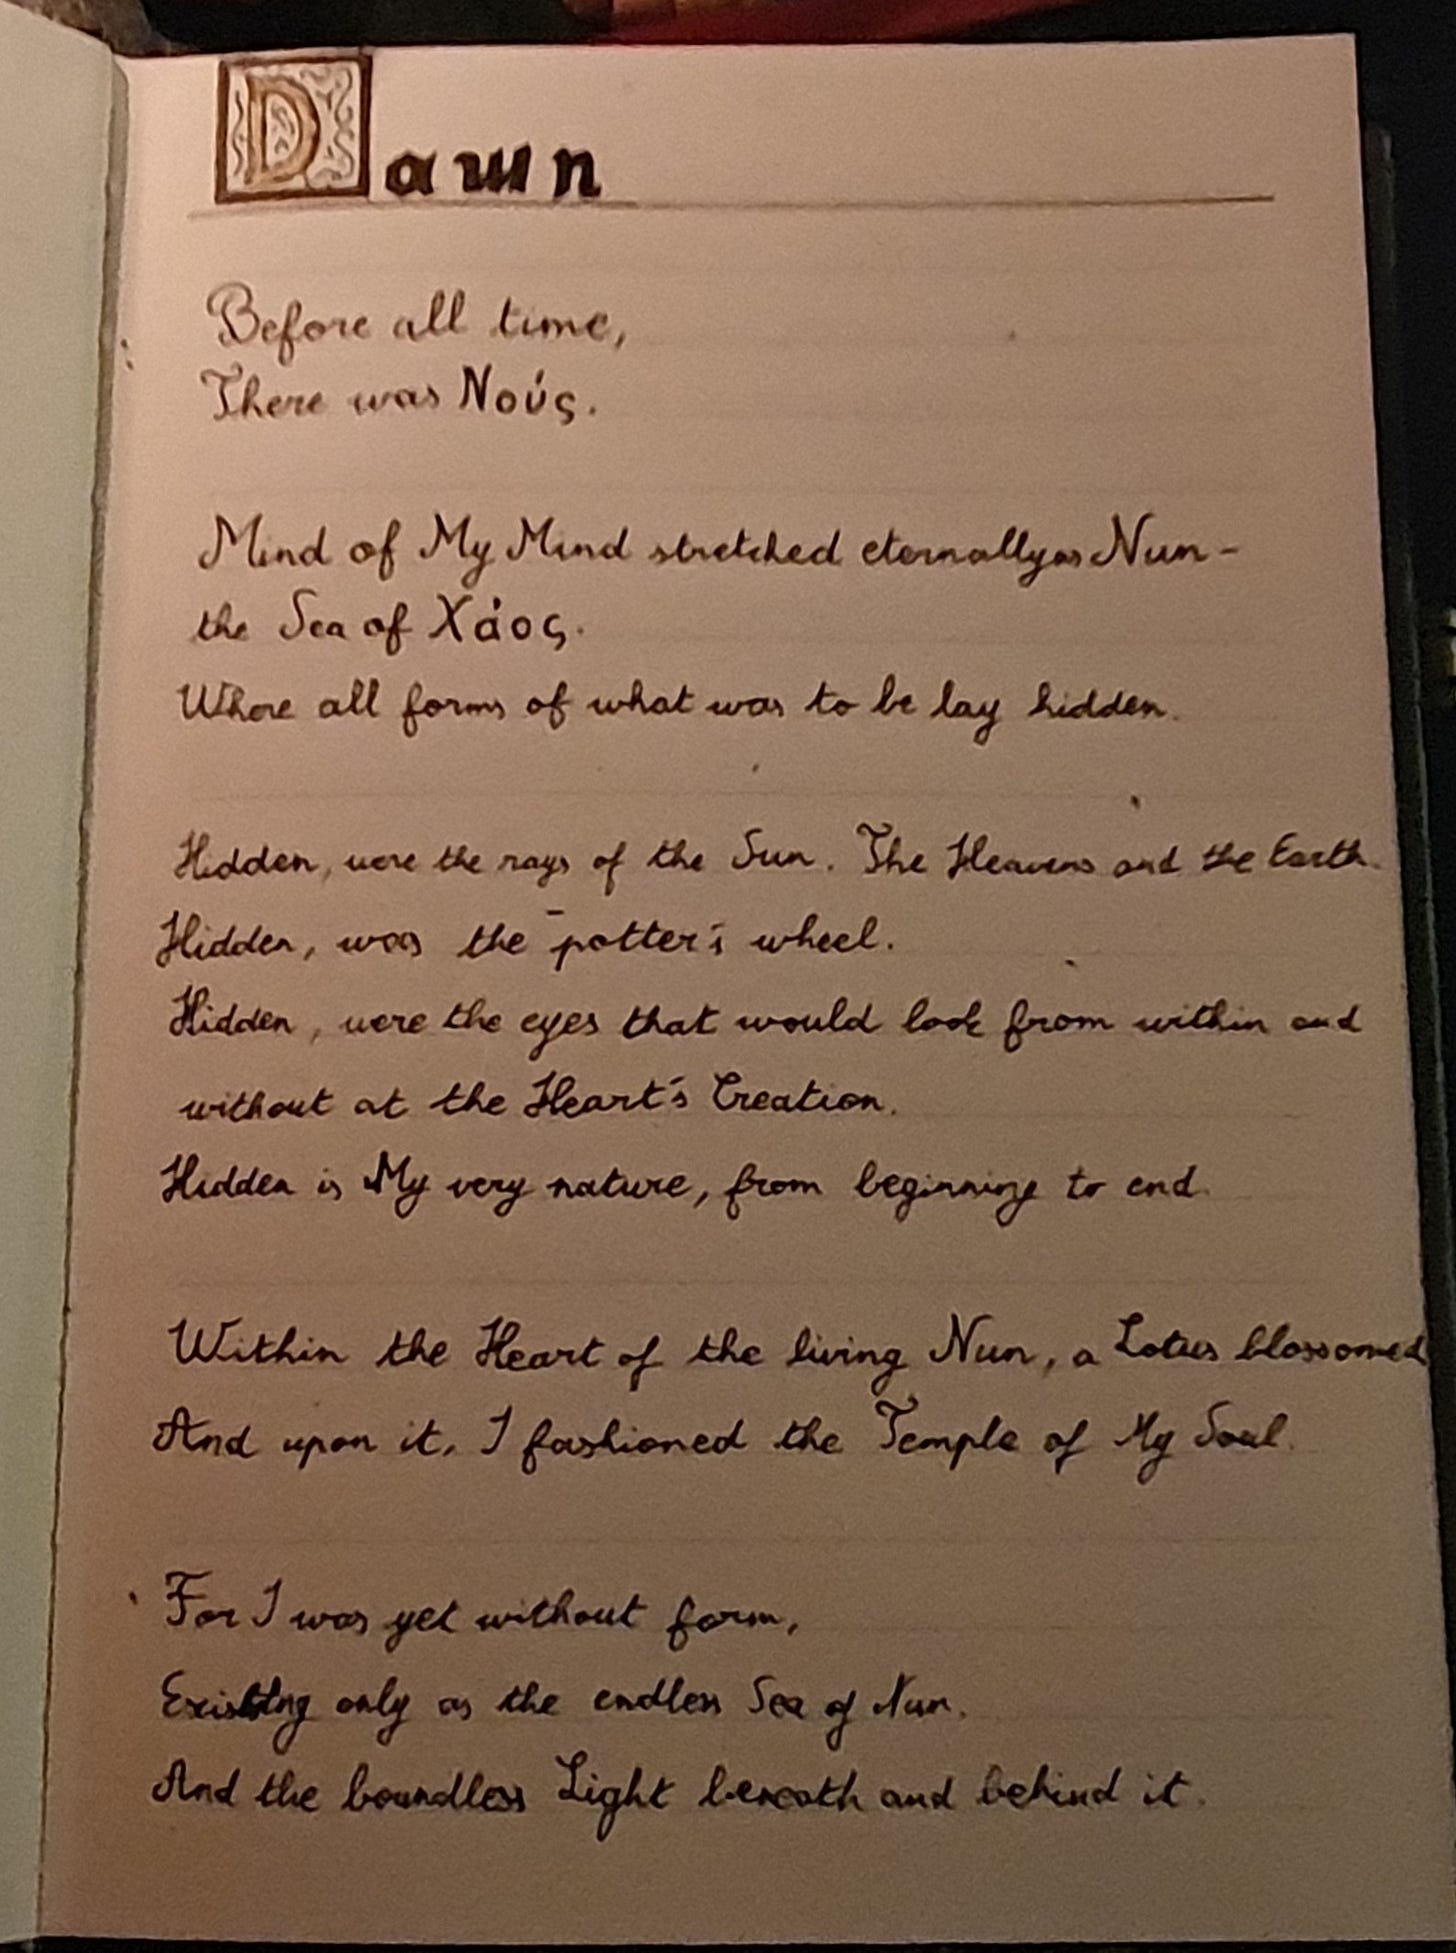 Dawn
Before all time,
There was Νούς.
Mind of My Mind stretched eternally as Nun-
the Sea of Χάος.
Where all forms of what was to be lay hidden.
Hidden, were the rays of the Sun. The Heavens and the Earth.
Hidden, was the potter's wheel.
Hidden, were the eyes that would look from within and
without at the Heart's Creation.
Hidden is My very nature, from beginning to end.
Within the Heart of the living Nun, a Lotus blossomed
And upon it, I fashioned the Temple of My Soul.
For I was yet without form,
Existing only as the endless Sea of Nun.
And the boundless Light beneath and behind it.